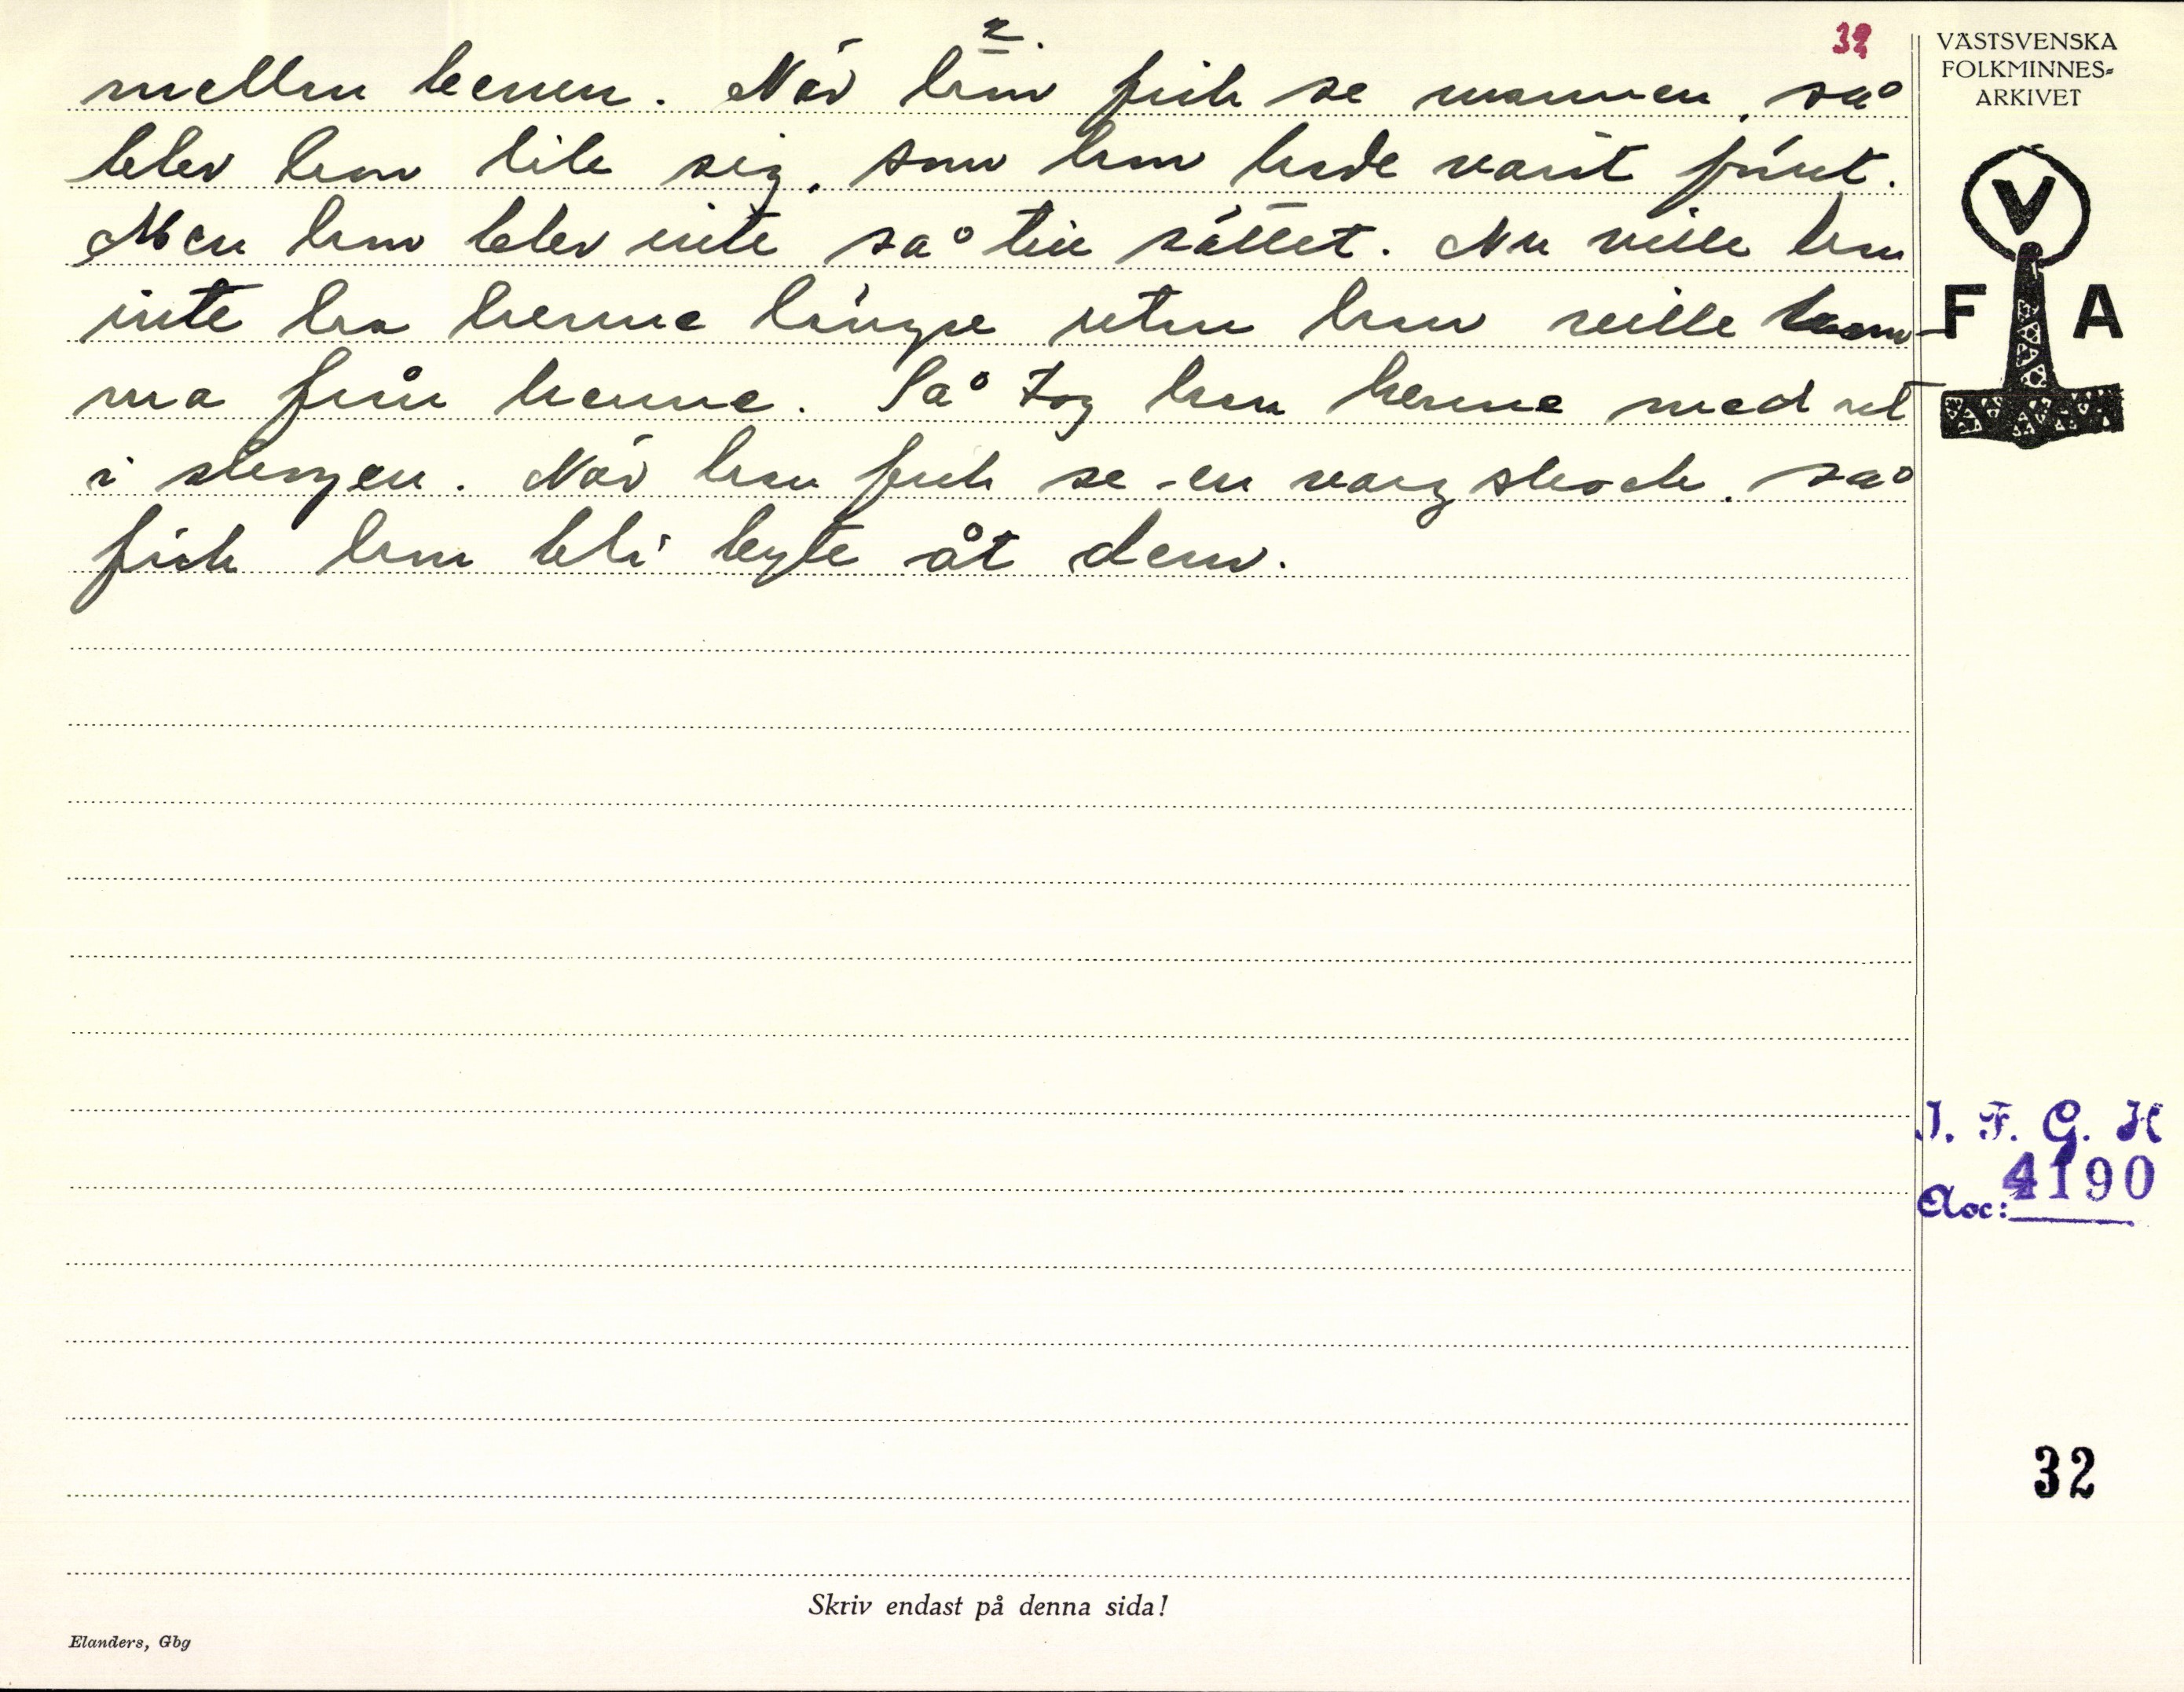 2.
32
mellan benen. När han fick se mannen, så
blev han lik sig, som han hade varit förut.
Men han blev inte så till sättet. Nu ville han
inte ha henne längre utan han ville kom-
ma från henne. Så tog han henne med ut
i skogen. När han fick se en varg skock, så
fick hon bli byte åt dem.
VÄSTSVENSKA
FOLKMINNES-
ARKIVET
V
F A
I. F. G. H
4190
Acc:
32
Skriv endast på denna sida!
Elanders, Gbg